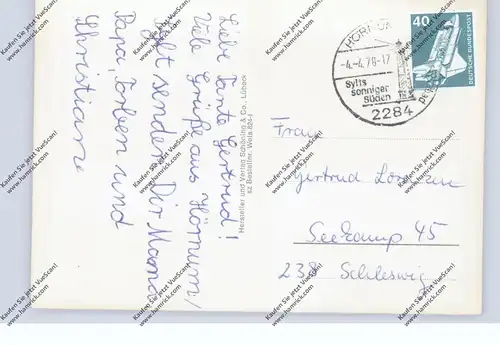 Liebe Tante Gertrud!
Viele Grüße aus Hörnum/
Sylt senden Dir Mama
Papa, Torben und
Christiane
Hersteller und Verlag Schöning & Co., Lübeck
HÖRNUM
-4.-4.78-17
Sylts
sonniger
Süden
2284
40
DEUTSCHE BUNDESPOST
Frau
Gertrud
Seekamp 45
238 Schleswig
Kaufen Sie jetzt VueScan!
www.hamrick.com